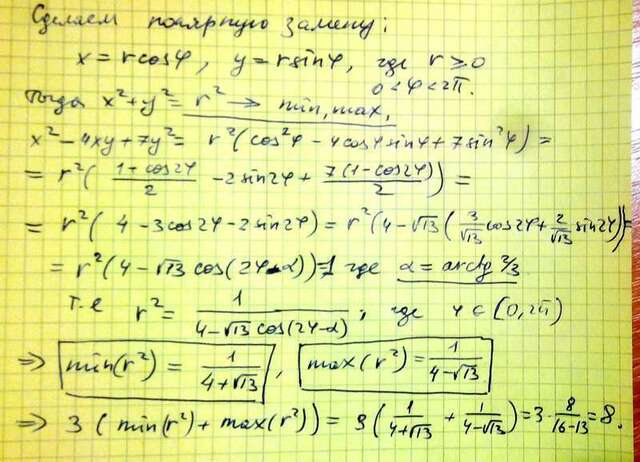 Сделаем полярную замену:
x = r cosφ, y = r sinφ, где r ≥ 0
0 < φ < 2π.
Тогда x² + y² = r² → min, max.
x² - 4xy + 7y² = r²(cos²φ - 4cosφ sinφ + 7sin²φ) =
= r²( (1 + cos2φ)/2 - 2sin2φ + 7(1 - cos2φ)/2 ) =
= r²( 4 - 3cos2φ - 2sin2φ) = r²(4 - √13 ( 3/√13 cos2φ + 2/√13 sin2φ)) =
= r²(4 - √13 cos(2φ - α)) = 1 где α = arctg 2/3
т.е r² = 1/(4 - √13 cos(2φ - α)); где φ ∈ [0, 2π)
⇒ min(r²) = 1/(4 + √13), max(r²) = 1/(4 - √13)
⇒ 3 ( min(r²) + max(r²)) = 3( 1/(4+√13) + 1/(4-√13) ) = 3 · 8/(16-13) = 8.